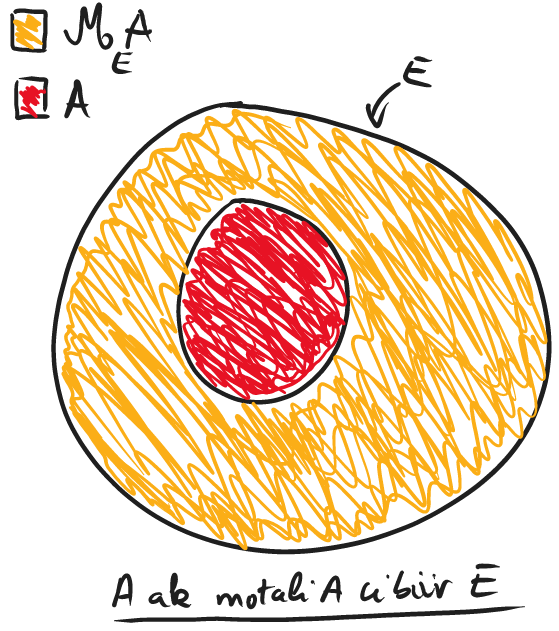 M A
E
A
E
A ak motali A ci biir E